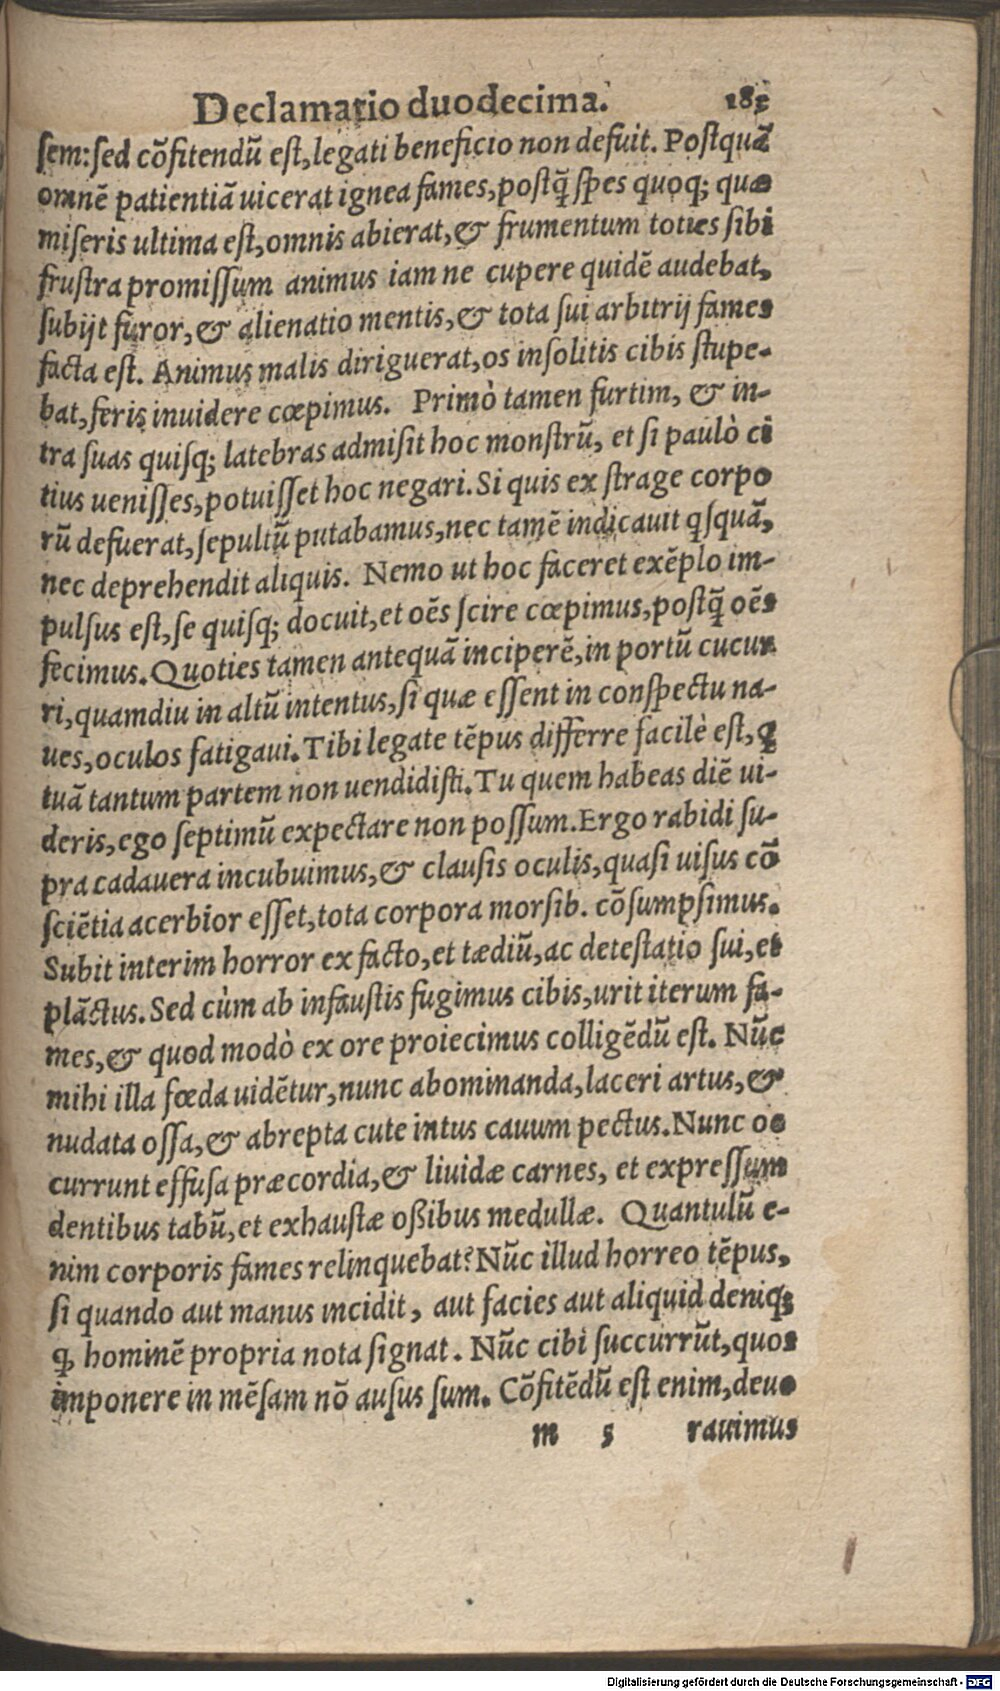 Declamatio duodecima. 185
ſem:ſed cõfitendũ eſt,legati beneficio non defuit. Poſtquã
omnẽ patientiã uicerat ignea fames,poſtq̃ ſpes quoq; quæ
miſeris ultima eſt,omnis abierat,& frumentum toties ſibi
fruſtra promiſſum animus iam ne cupere quidẽ audebat,
ſubijt furor,& alienatio mentis,& tota ſui arbitrij fames
facta eſt. Animus malis diriguerat,os inſolitis cibis ſtupe-
bat,feris inuidere cœpimus. Primò tamen furtim, & in-
tra ſuas quiſq; latebras admiſit hoc monſtrũ, et ſi paulò ci
tius ueniſſes,potuiſſet hoc negari.Si quis ex ſtrage corpo
rũ defuerat,ſepultũ putabamus,nec tamẽ indicauit q̃ſquã,
nec deprehendit aliquis. Nemo ut hoc faceret exẽplo im-
pulſus eſt,ſe quiſq; docuit,et oẽs ſcire cœpimus,poſtq̃ oẽs
fecimus.Quoties tamen antequã inciperẽ,in portũ cucur
ri,quamdiu in altũ intentus,ſi quæ eſſent in conſpectu na-
ues,oculos fatigaui.Tibi legate tẽpus differre facilè eſt,q
tuã tantum partem non uendidiſti.Tu quem habeas diẽ ui-
deris,ego ſeptimũ expectare non poſſum.Ergo rabidi ſu-
pra cadauera incubuimus,& clauſis oculis,quaſi uiſus cõ
ſciẽtia acerbior eſſet,tota corpora morſib. cõſumpſimus.
Subit interim horror ex facto,et tædiũ,ac deteſtatio ſui,et
plãctus.Sed cùm ab infauſtis fugimus cibis,urit iterum fa-
mes,& quod modò ex ore proiecimus colligẽdũ eſt. Nũc
mihi illa fœda uidẽtur,nunc abominanda,laceri artus,&
nudata oſſa,& abrepta cute intus cauum pectus.Nunc oc
currunt effuſa præcordia,& liuidæ carnes, et expreſſum
dentibus tabũ,et exhauſtæ oßibus medullæ. Quantulũ e-
nim corporis fames relinquebat?Nũc illud horreo tẽpus,
ſi quando aut manus incidit, aut facies aut aliquid deniq;
q̃ hominẽ propria nota ſignat. Nũc cibi ſuccurrũt,quos
imponere in mẽſam nõ auſus ſum. Cõfitẽdũ eſt enim,deuo
m 5 rauimus
Digitalisierung gefördert durch die Deutsche Forschungsgemeinschaft - DFG